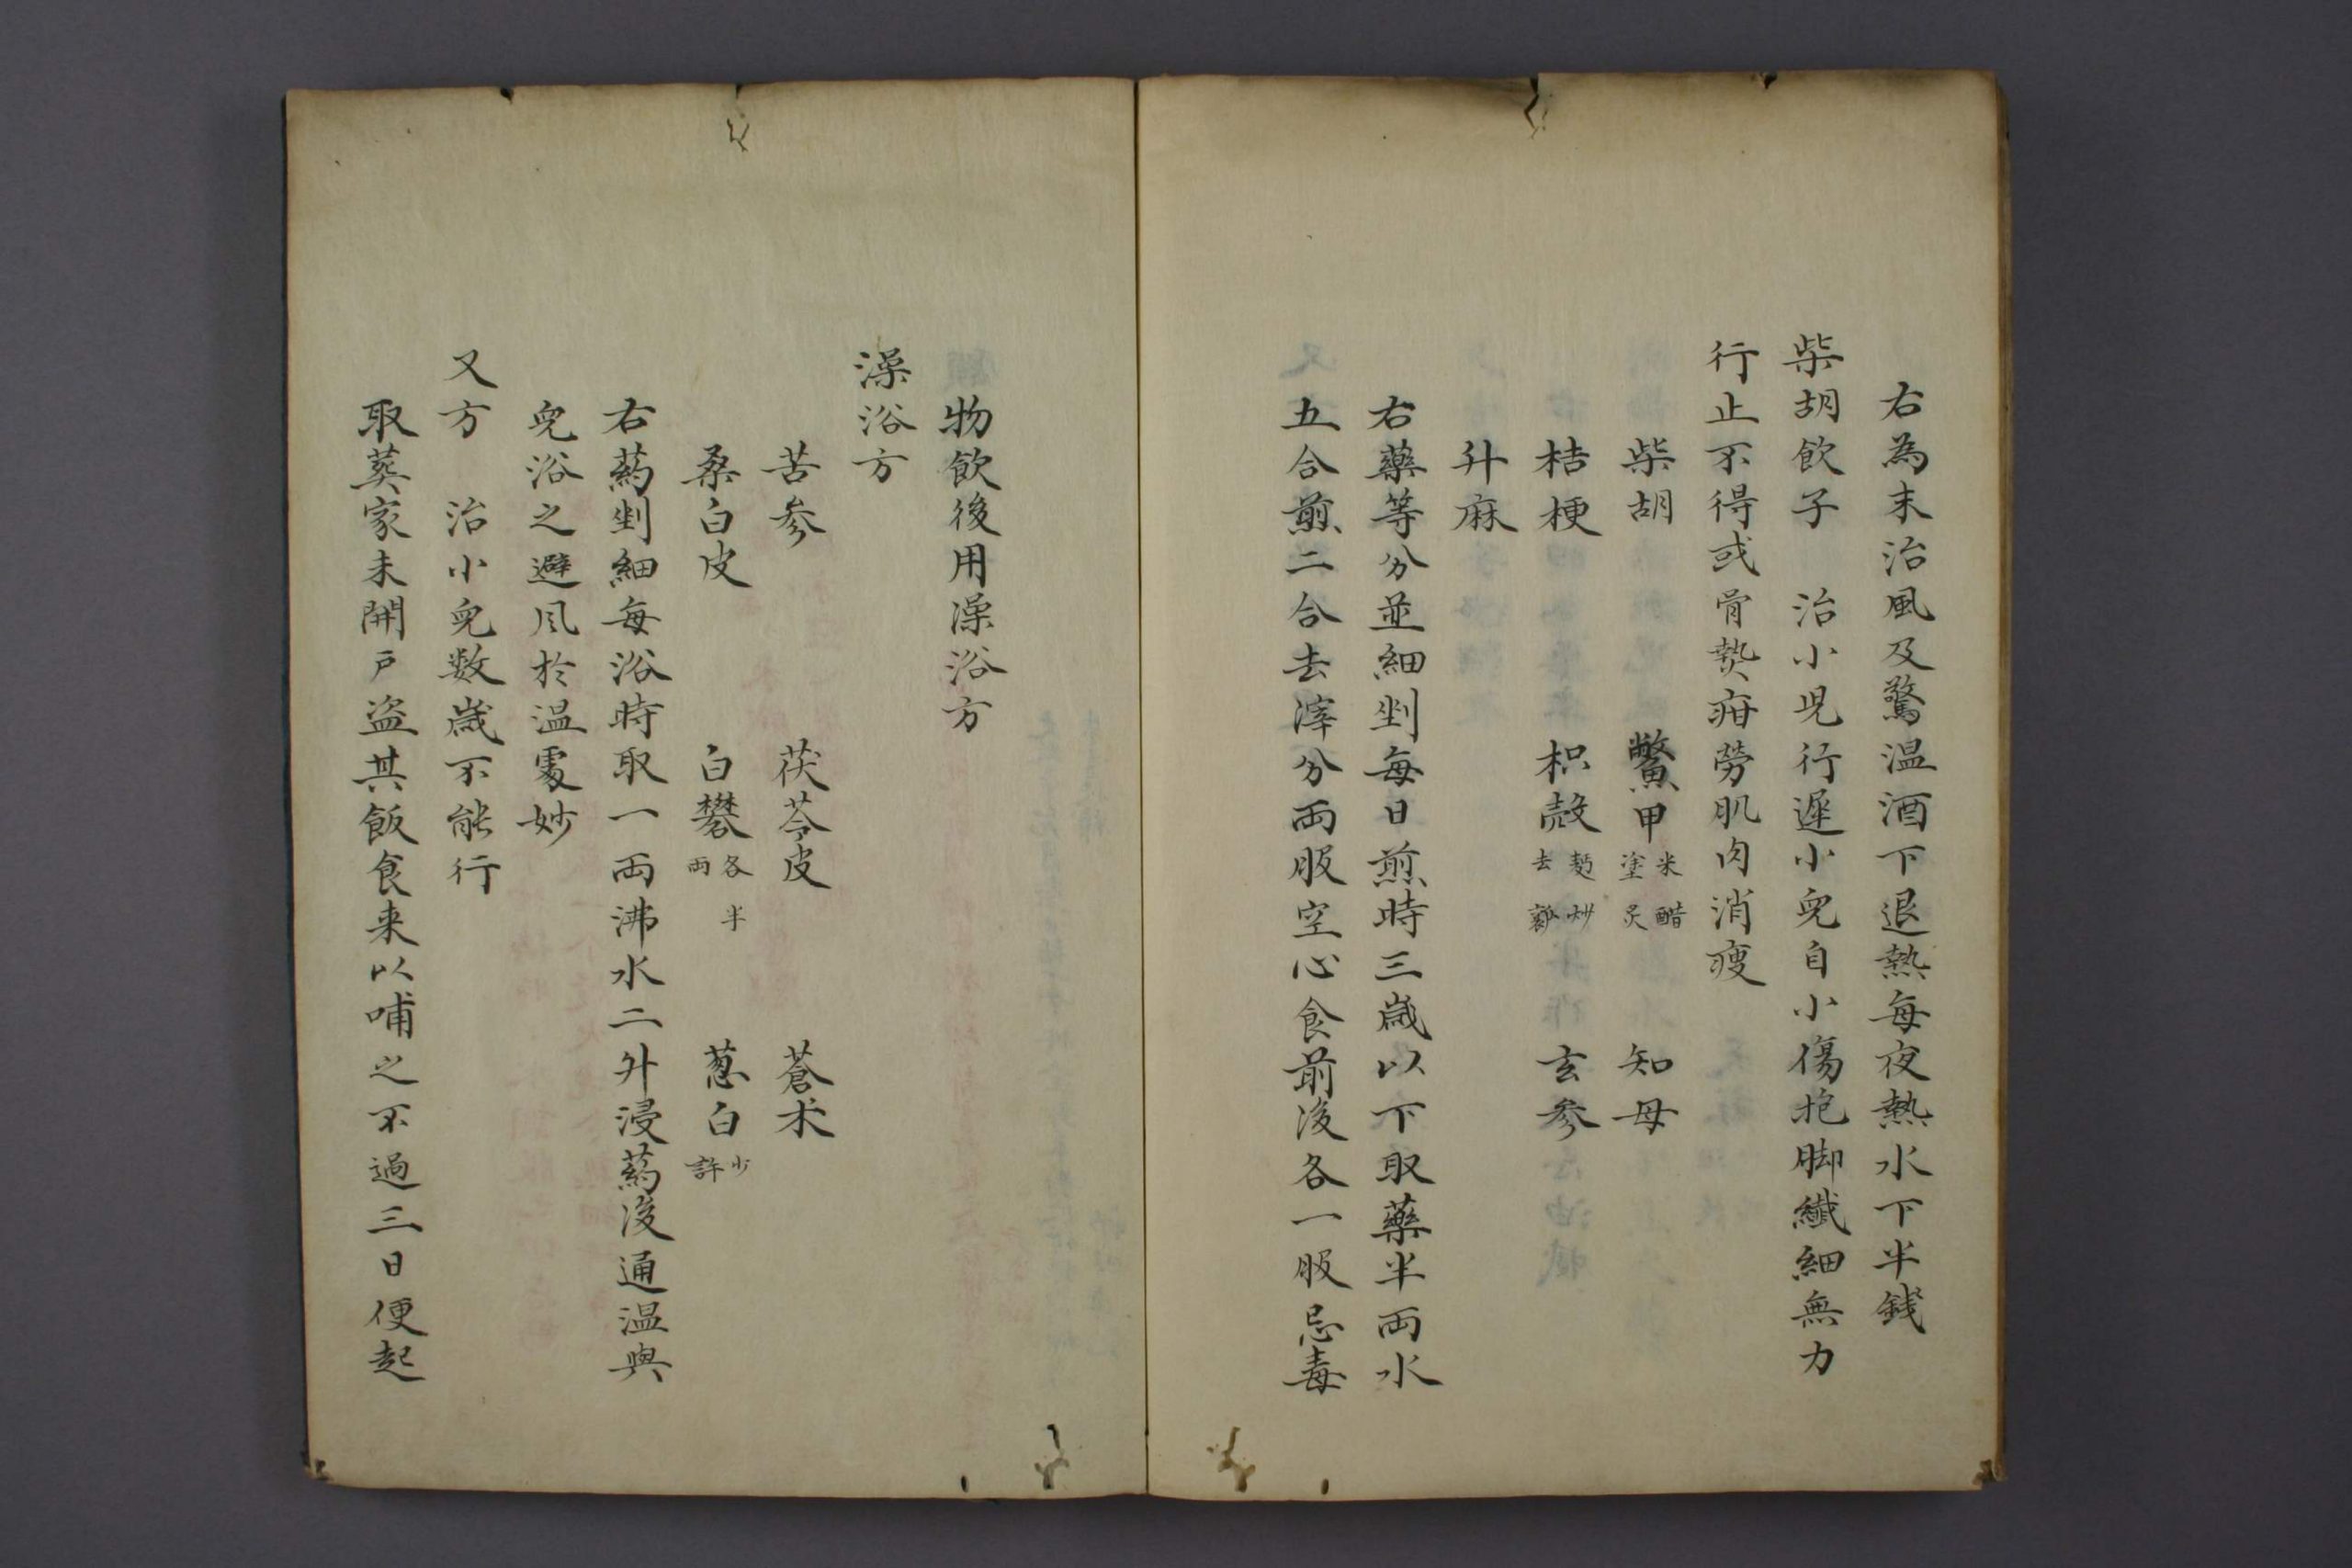 右為末治風及驚温酒下退熱每夜熱水下半錢
柴胡飲子　治小児行遲小兒自小傷抱脚纖細無力
行止不得或骨熱疳勞肌肉消瘦
柴胡　鱉甲米醋塗炙　知母
桔梗　枳殻麩炒去瓤　玄参
升麻
右藥等分並細剉每日煎時三歳以下取藥半両水
五合煎二合去滓分両服空心食前後各一服忌毒
物飲後用澡浴方
澡浴方
苦参　茯苓皮　蒼朮
桑白皮　白礬各半両　葱白少許
右薬剉細每浴時取一両沸水二升浸薬後通温與
兒浴之避风於温處妙
又方　治小兒数歳不能行
取葬家未開戸盗其飯食来以哺之不過三日便起